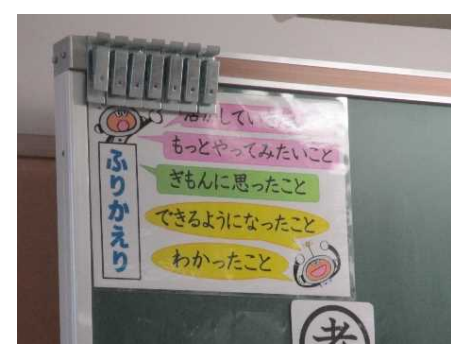 ふりかえり
していきたいこと
もっとやってみたいこと
ぎもんに思ったこと
できるようになったこと
わかったこと
考